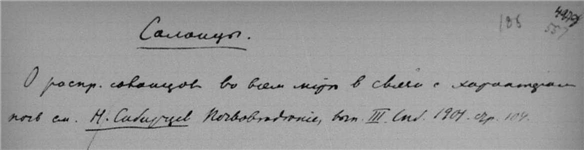 185
Солонцы.
О распр. солонцов во всем мiре в связи с характером
почв см. Н. Сибирцев Почвоведение, вып. III. Спб. 1901. стр. 104.